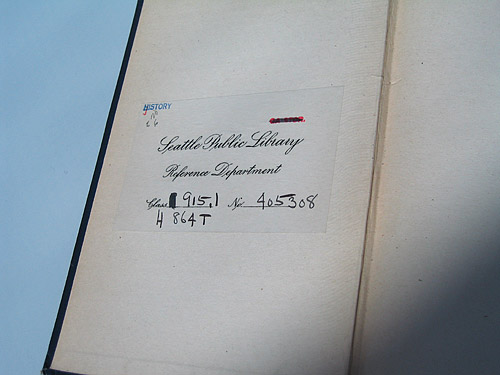 HISTORY
Seattle Public Library
Reference Department
Class 915.1 No. 405308
H 864T